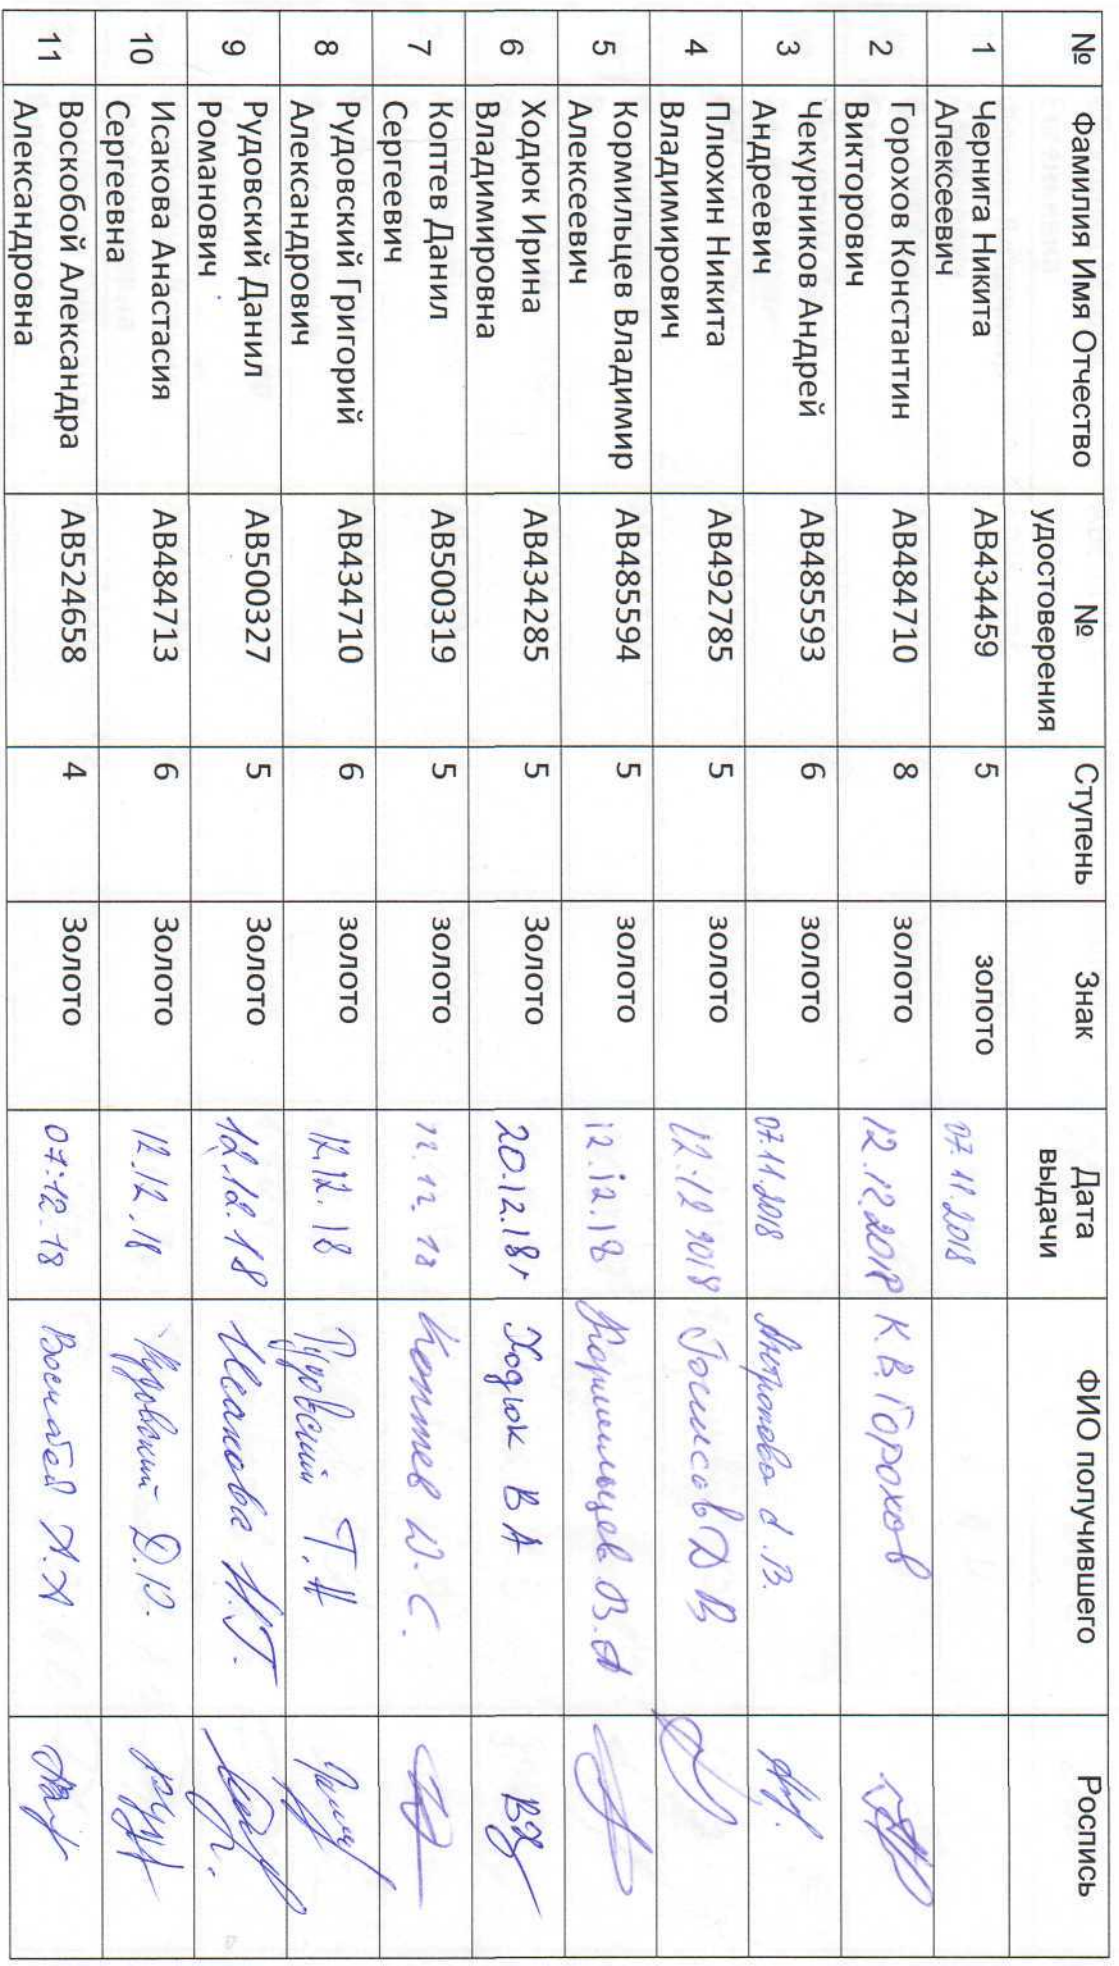 № Фамилия Имя Отчество № удостоверения Ступень Знак Дата выдачи ФИО получившего Роспись
1 Чернига Никита Алексеевич АВ434459 5 золото 07.11.2018
2 Горохов Константин Викторович АВ484710 8 золото 12.12.2018 К.В. Горохов
3 Чекурников Андрей Андреевич АВ485593 6 золото 07.11.2018
4 Плюхин Никита Владимирович АВ492785 5 золото 12.12 2018
5 Кормильцев Владимир Алексеевич АВ485594 5 золото 12.12.18 Кормильцев В.А
6 Ходюк Ирина Владимировна АВ434285 5 Золото 20.12.18г Ходюк В А
7 Коптев Данил Сергеевич АВ500319 5 золото 12.12.18 Коптев
8 Рудовский Григорий Александрович АВ434710 6 золото 12.12.18 Рудовский
9 Рудовский Данил Романович АВ500327 5 Золото 12.12.18 Исакова
10 Исакова Анастасия Сергеевна АВ484713 6 Золото 12.12.18 Рудовский
11 Воскобой Александра Александровна АВ524658 4 Золото 07.12.18 Воскобой А.А